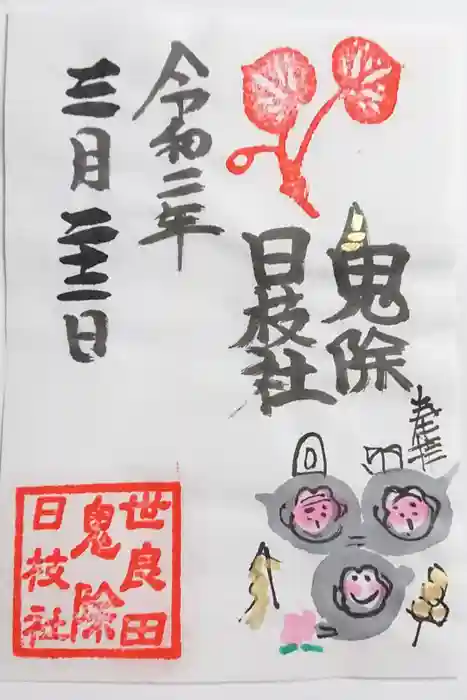 鬼除
日枝社
令和二年
三月二十二日
世良田
鬼除
日枝社